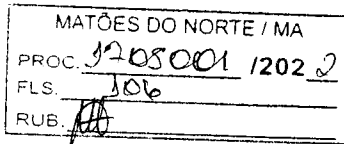 MATÕES DO NORTE / MA
PROC. 1708001 /2022
FLS. 106
RUB.